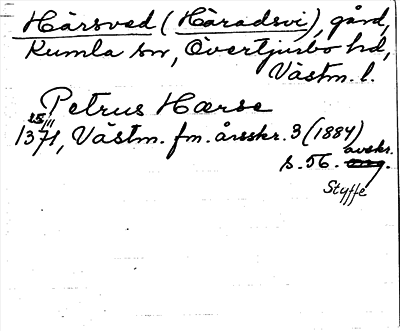 Härsved (Häradsvi), gård,
Kumla sn, Övertjurbo hd,
Västm. l.
Petrus Hærse
15/III
1371, Västm. fm. årsskr. 3 (1884)
avskr.
s. 56. org.
Styffe